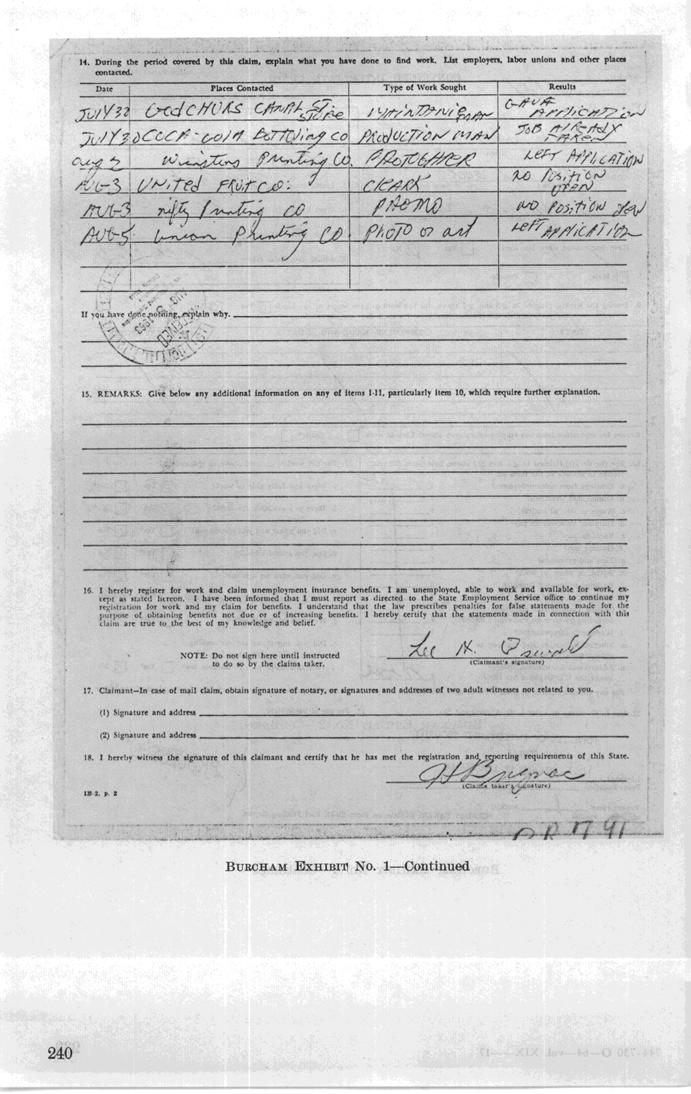 14. During the period covered by this claim, explain what you have done to find work. List employers, labor unions and other places
contacted.
Date Places Contacted Type of Work Sought Results
JULY 30 GODCHURS CANAL ST. STORE MAINTANIG MAN GAVA APPLICATION
JULY 30 COCA-COLA BOTTOLING CO PRODUCTION MAN JOB ALREADY TAKEN
aug 2 Winstins Printing CO. LEFT APPLICATION
AUG-3 UNITED FRUT CO. CLEARK NO POSITION OPEN
AUG-3 nifty Printing CO PHOTO NO POSITION OPEN
AUG-5 union Printing CO. PHOTO or art LEFT APPLICATION
If you have done nothing, explain why.
RECEIVED
15. REMARKS: Give below any additional information on any of items 1-11, particularly item 10, which require further explanation.
16. I hereby register for work and claim unemployment insurance benefits. I am unemployed, able to work and available for work, ex-
cept as stated hereon. I have been informed that I must report as directed to the State Employment Service office to continue my
registration for work and my claim for benefits. I understand that the law prescribes penalties for false statements made for the
purpose of obtaining benefits not due or of increasing benefits. I hereby certify that the statements made in connection with this
claim are true to the best of my knowledge and belief.
Lee H. Oswald
NOTE: Do not sign here until instructed
to do so by the claims taker.
(Claimant's signature)
17. Claimant—In case of mail claim, obtain signature of notary, or signatures and addresses of two adult witnesses not related to you.
(1) Signature and address
(2) Signature and address
18. I hereby witness the signature of this claimant and certify that he has met the registration and reporting requirements of this State.
(Claims taker's signature)
IB-2, p. 2
BURCHAM EXHIBIT No. 1—Continued
240